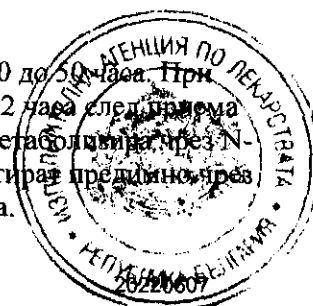 0 до 50 часа. При
2 часа след приема
метаболизира чрез N-
тират предимно чрез
а.
ИЗПЪЛНИТЕЛНА АГЕНЦИЯ ПО ЛЕКАРСТВАТА
РЕПУБЛИКА БЪЛГАРИЯ
20220607